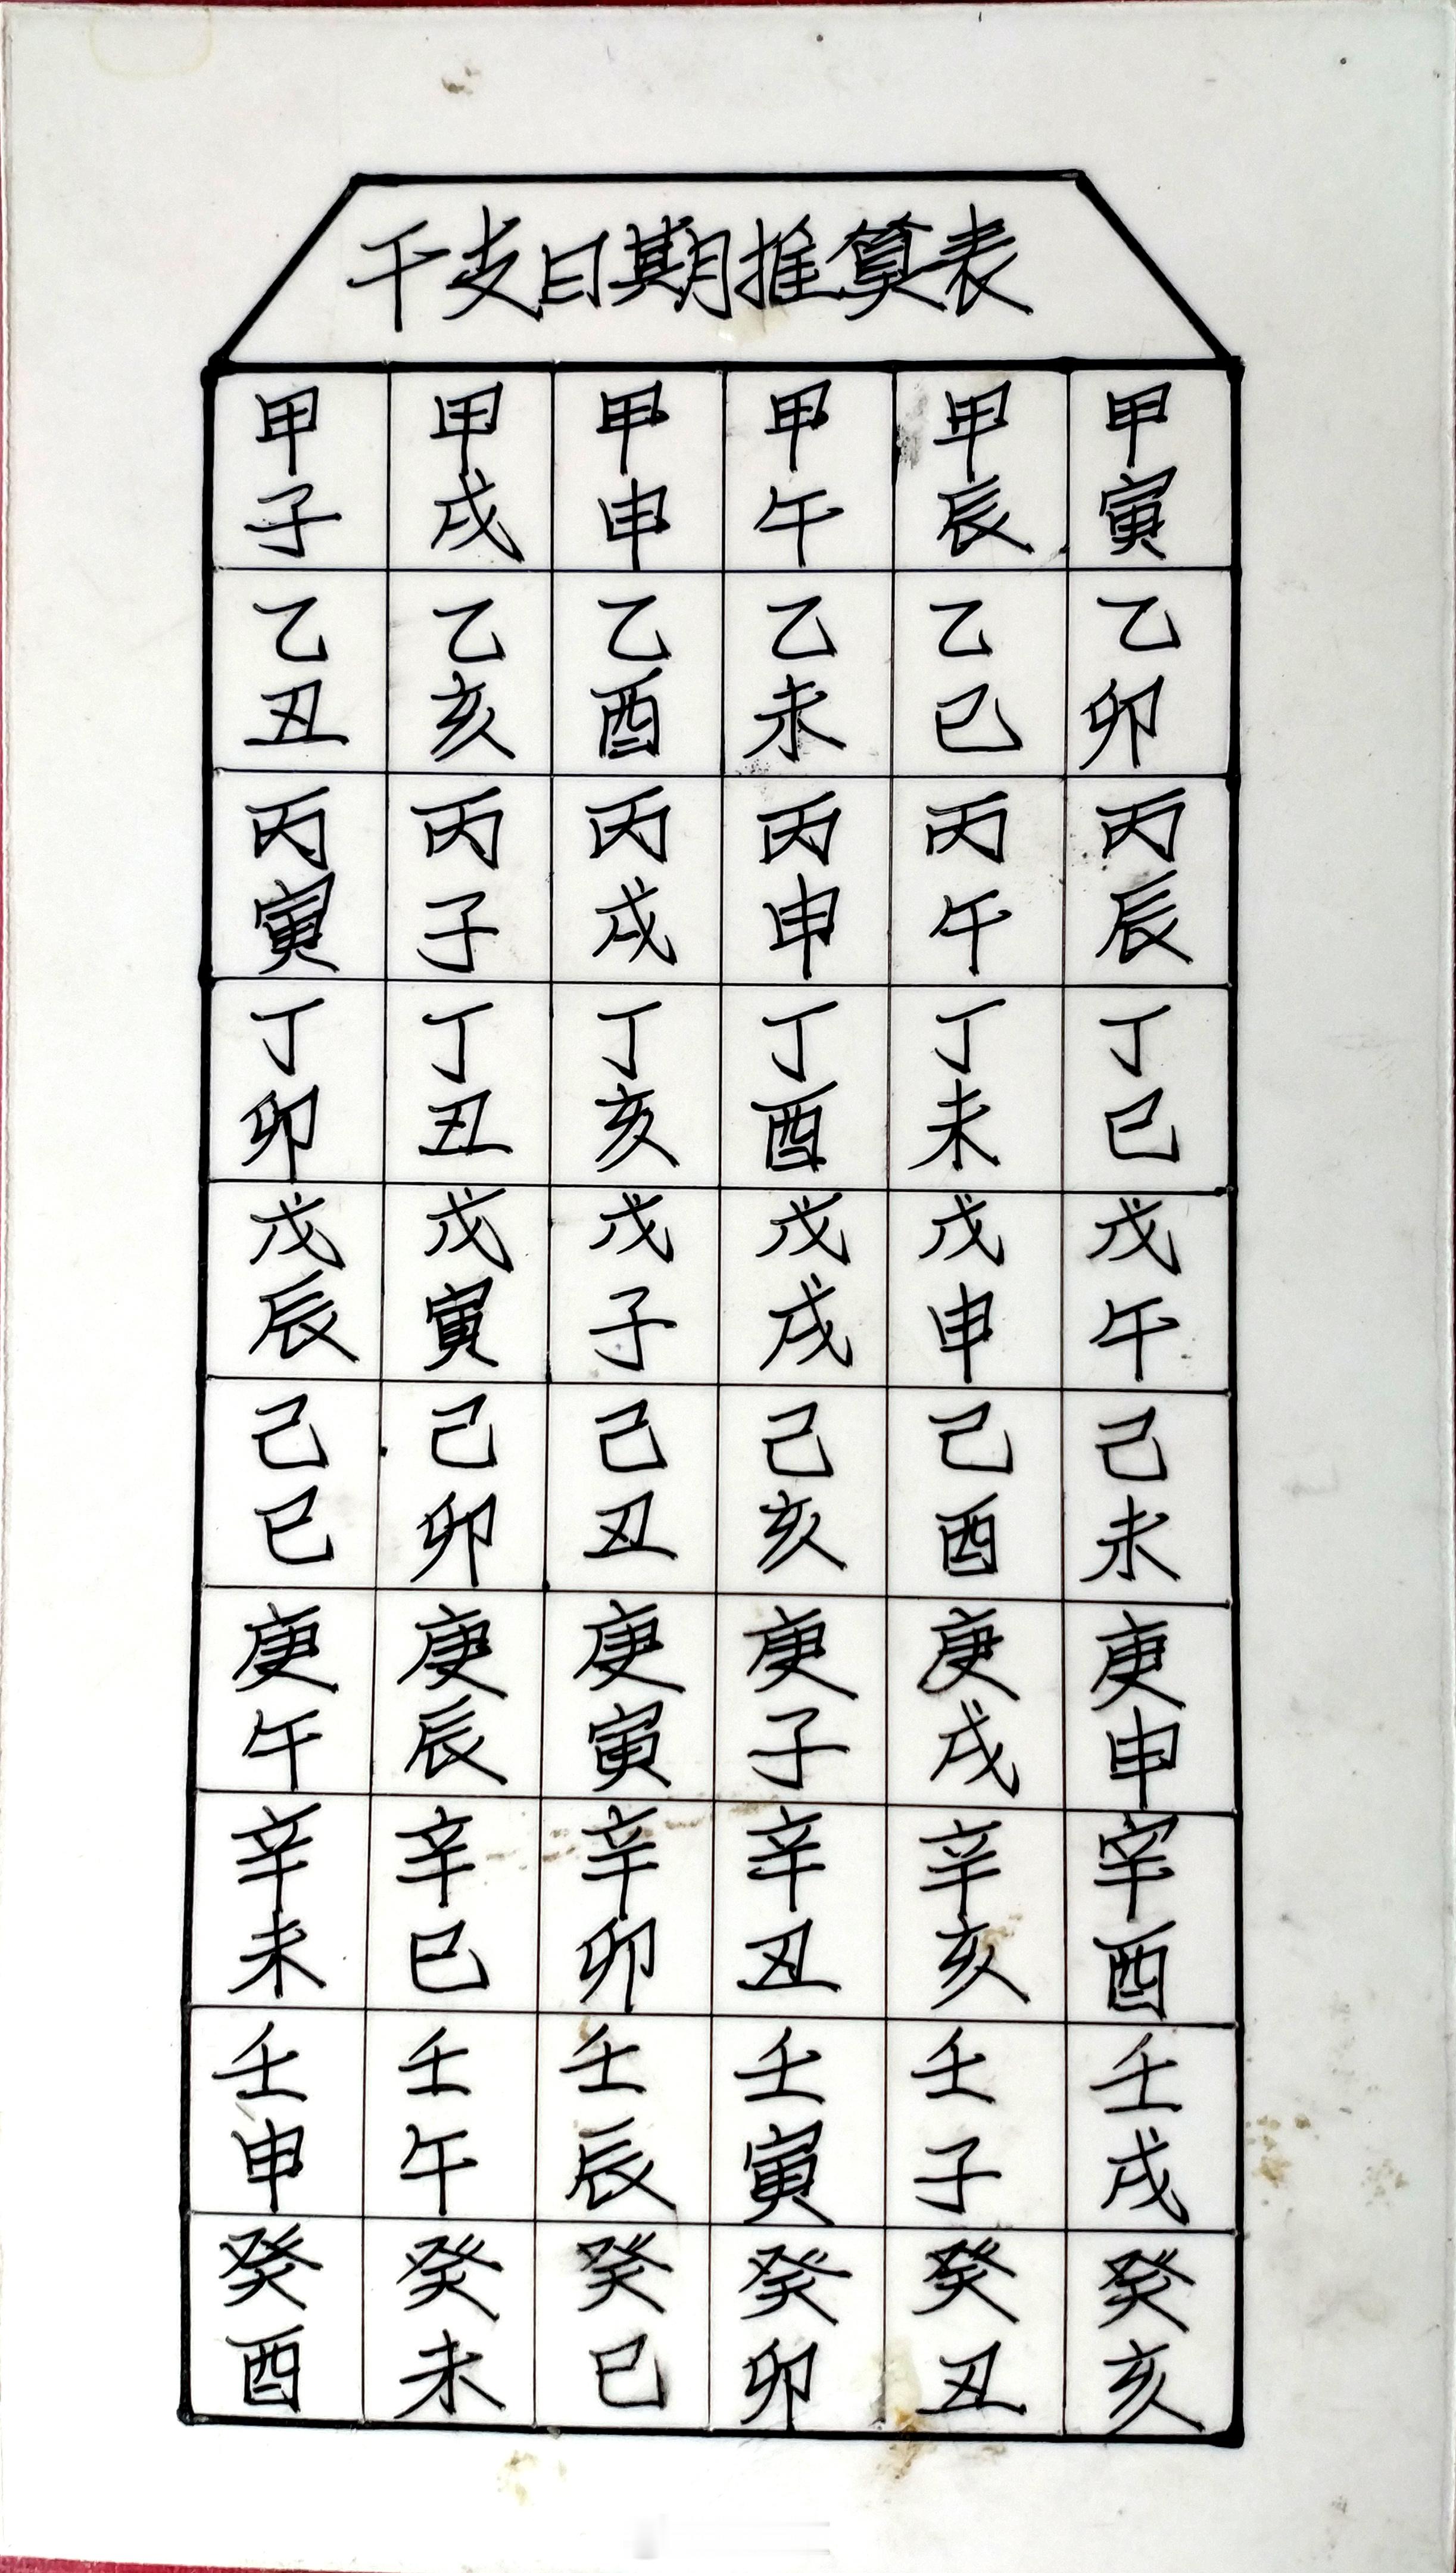 干支日期推算表
甲子 甲戌 甲申 甲午 甲辰 甲寅
乙丑 乙亥 乙酉 乙未 乙巳 乙卯
丙寅 丙子 丙戌 丙申 丙午 丙辰
丁卯 丁丑 丁亥 丁酉 丁未 丁巳
戊辰 戊寅 戊子 戊戌 戊申 戊午
己巳 己卯 己丑 己亥 己酉 己未
庚午 庚辰 庚寅 庚子 庚戌 庚申
辛未 辛巳 辛卯 辛丑 辛亥 辛酉
壬申 壬午 壬辰 壬寅 壬子 壬戌
癸酉 癸未 癸巳 癸卯 癸丑 癸亥